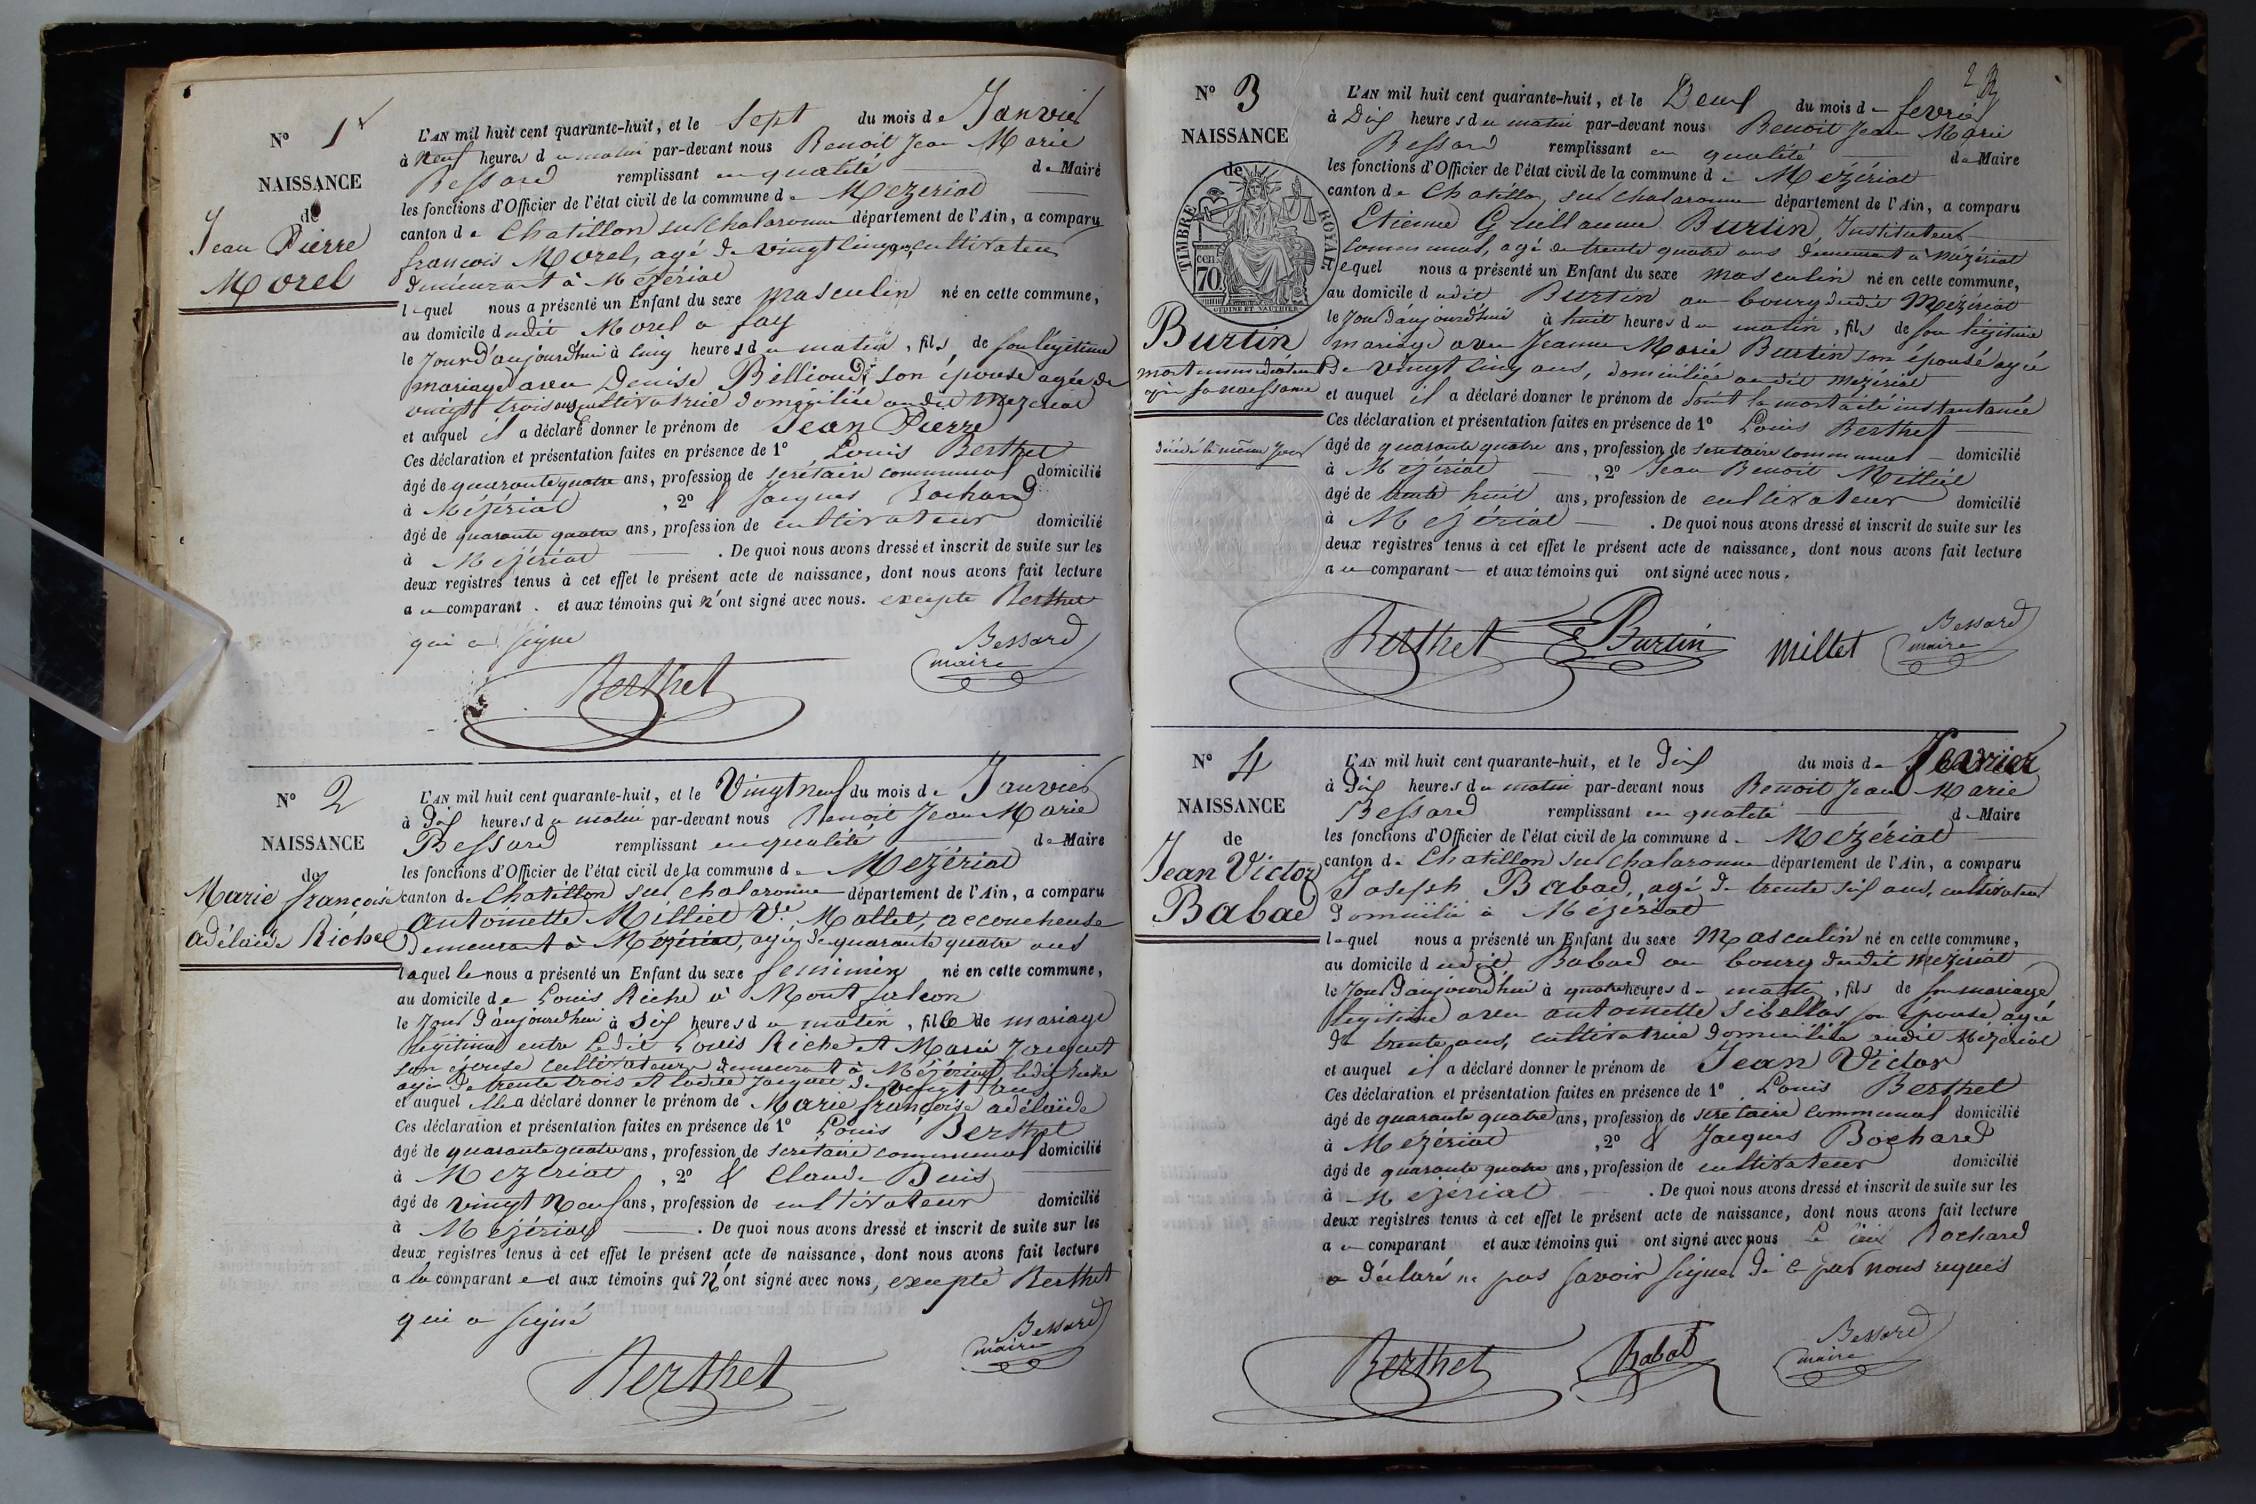 N° 1er
NAISSANCE
de
Jean Pierre
Morel
L'AN mil huit cent quarante-huit, et le Sept du mois de Janvier
à neuf heures du matin par-devant nous Benoit Jean Marie
Bessard remplissant en qualité de Maire
les fonctions d'Officier de l'état civil de la commune de Mézériat
canton de Chatillon sur Chalaronne département de l'Ain, a comparu
françois Morel, agé de vingt cinq ans, cultivateur
demeurant à Mézériat
lequel nous a présenté un Enfant du sexe masculin né en cette commune,
au domicile dudit Morel a fay
le jour d'aujourd'hui à cinq heures du matin, fils de son légitime
mariage avec Denise Billioud, son épouse agée de
vingt trois ans cultivatrice domiciliée audit Mézériat
et auquel il a déclaré donner le prénom de Jean Pierre
Ces déclaration et présentation faites en présence de 1° Louis Berthet
âgé de quarante quatre ans, profession de secrétaire communal domicilié
à Mézériat, 2° & Jacques Bochard
âgé de quarante quatre ans, profession de cultivateur domicilié
à Mézériat. De quoi nous avons dressé et inscrit de suite sur les
deux registres tenus à cet effet le présent acte de naissance, dont nous avons fait lecture
au comparant. et aux témoins qui n'ont signé avec nous. excepté Berthet
qui a signé
Bessard
maire
Berthet
N° 2
NAISSANCE
de
Marie françoise
adélaïde Riche
L'AN mil huit cent quarante-huit, et le Vingt neuf du mois de Janvier
à Dix heures du matin par-devant nous Benoit Jean Marie
Bessard remplissant en qualité de Maire
les fonctions d'Officier de l'état civil de la commune de Mézériat
canton de Chatillon sur Chalaronne département de l'Ain, a comparu
antoinette Milliet Ve Mallet, accoucheuse
demeurant à Mézériat, agée de quarante quatre ans
laquelle nous a présenté un Enfant du sexe feminin né en cette commune,
au domicile de Louis Riche à Montfalcon
le jour d'aujourd'hui à six heures du matin, fille de mariage
légitime entre ledit Louis Riche et Marie Jacquet
son épouse cultivateurs demeurant à Mézériat, ledit Riche
agé de trente trois et ladite Jacquet de vingt ans
et auquel elle a déclaré donner le prénom de Marie françoise adélaïde
Ces déclaration et présentation faites en présence de 1° Louis Berthet
âgé de quarante quatre ans, profession de secretaire communal domicilié
à Mézériat, 2° & Claude Buis
âgé de vingt neuf ans, profession de cultivateur domicilié
à Mézériat. De quoi nous avons dressé et inscrit de suite sur les
deux registres tenus à cet effet le présent acte de naissance, dont nous avons fait lecture
a la comparante et aux témoins qui N'ont signé avec nous, excepté Berthet
qui a signé
Bessard
maire
Berthet
2
N° 3
NAISSANCE
de
TIMBRE ROYAL
cen.
70.
Burtin
mort immédiatement
après sa naissance
décédé le même jour
L'AN mil huit cent quarante-huit, et le Deux du mois de fevrier
à Dix heures du matin par-devant nous Benoit Jean Marie
Bessard remplissant en qualité de Maire
les fonctions d'Officier de l'état civil de la commune de Mézériat
canton de Chatillon sur Chalaronne département de l'Ain, a comparu
Etienne Guillaume Burtin, Instituteur
communal, agé de trente quatre ans demeurant à Mézériat
lequel nous a présenté un Enfant du sexe masculin né en cette commune,
au domicile dudit Burtin au bourg dudit Mézériat
le jour d'aujourd'hui à huit heures du matin, fils de son légitime
mariage avec Jeanne Marie Burtin son épouse agée
de vingt cinq ans, domiciliée audit Mézériat
et auquel il a déclaré donner le prénom de dont la mort a été instantanée
Ces déclaration et présentation faites en présence de 1° Louis Berthet
âgé de quarante quatre ans, profession de secretaire communal domicilié
à Mézériat, 2° Jean Benoit Milliet
âgé de trente huit ans, profession de cultivateur domicilié
à Mézériat. De quoi nous avons dressé et inscrit de suite sur les
deux registres tenus à cet effet le présent acte de naissance, dont nous avons fait lecture
au comparant et aux témoins qui ont signé avec nous.
Berthet Burtin millet Bessard
maire
N° 4
NAISSANCE
de
Jean Victor
Babad
L'AN mil huit cent quarante-huit, et le Dix du mois de fevrier
à Dix heures du matin par-devant nous Benoit Jean Marie
Bessard remplissant en qualité de Maire
les fonctions d'Officier de l'état civil de la commune de Mézériat
canton de Chatillon sur Chalaronne département de l'Ain, a comparu
Joseph Babad, agé de trente six ans, cultivateur
domicilié à Mézériat
lequel nous a présenté un Enfant du sexe Masculin né en cette commune,
au domicile dudit Babad au bourg dudit Mézériat
le jour d'aujourd'hui à quatre heures du matin, fils de son mariage
légitime avec antoinette Sibellas son épouse agée
de trente ans, cultivatrice domiciliée audit Mézériat
et auquel il a déclaré donner le prénom de Jean Victor
Ces déclaration et présentation faites en présence de 1° Louis Berthet
âgé de quarante quatre ans, profession de secretaire communal domicilié
à Mézériat, 2° & Jacques Bochard
âgé de quarante quatre ans, profession de cultivateur domicilié
à Mézériat. De quoi nous avons dressé et inscrit de suite sur les
deux registres tenus à cet effet le présent acte de naissance, dont nous avons fait lecture
au comparant et aux témoins qui ont signé avec nous Bochard
a déclaré ne pas savoir signer de ce par nous requis
Berthet Babad Bessard
maire